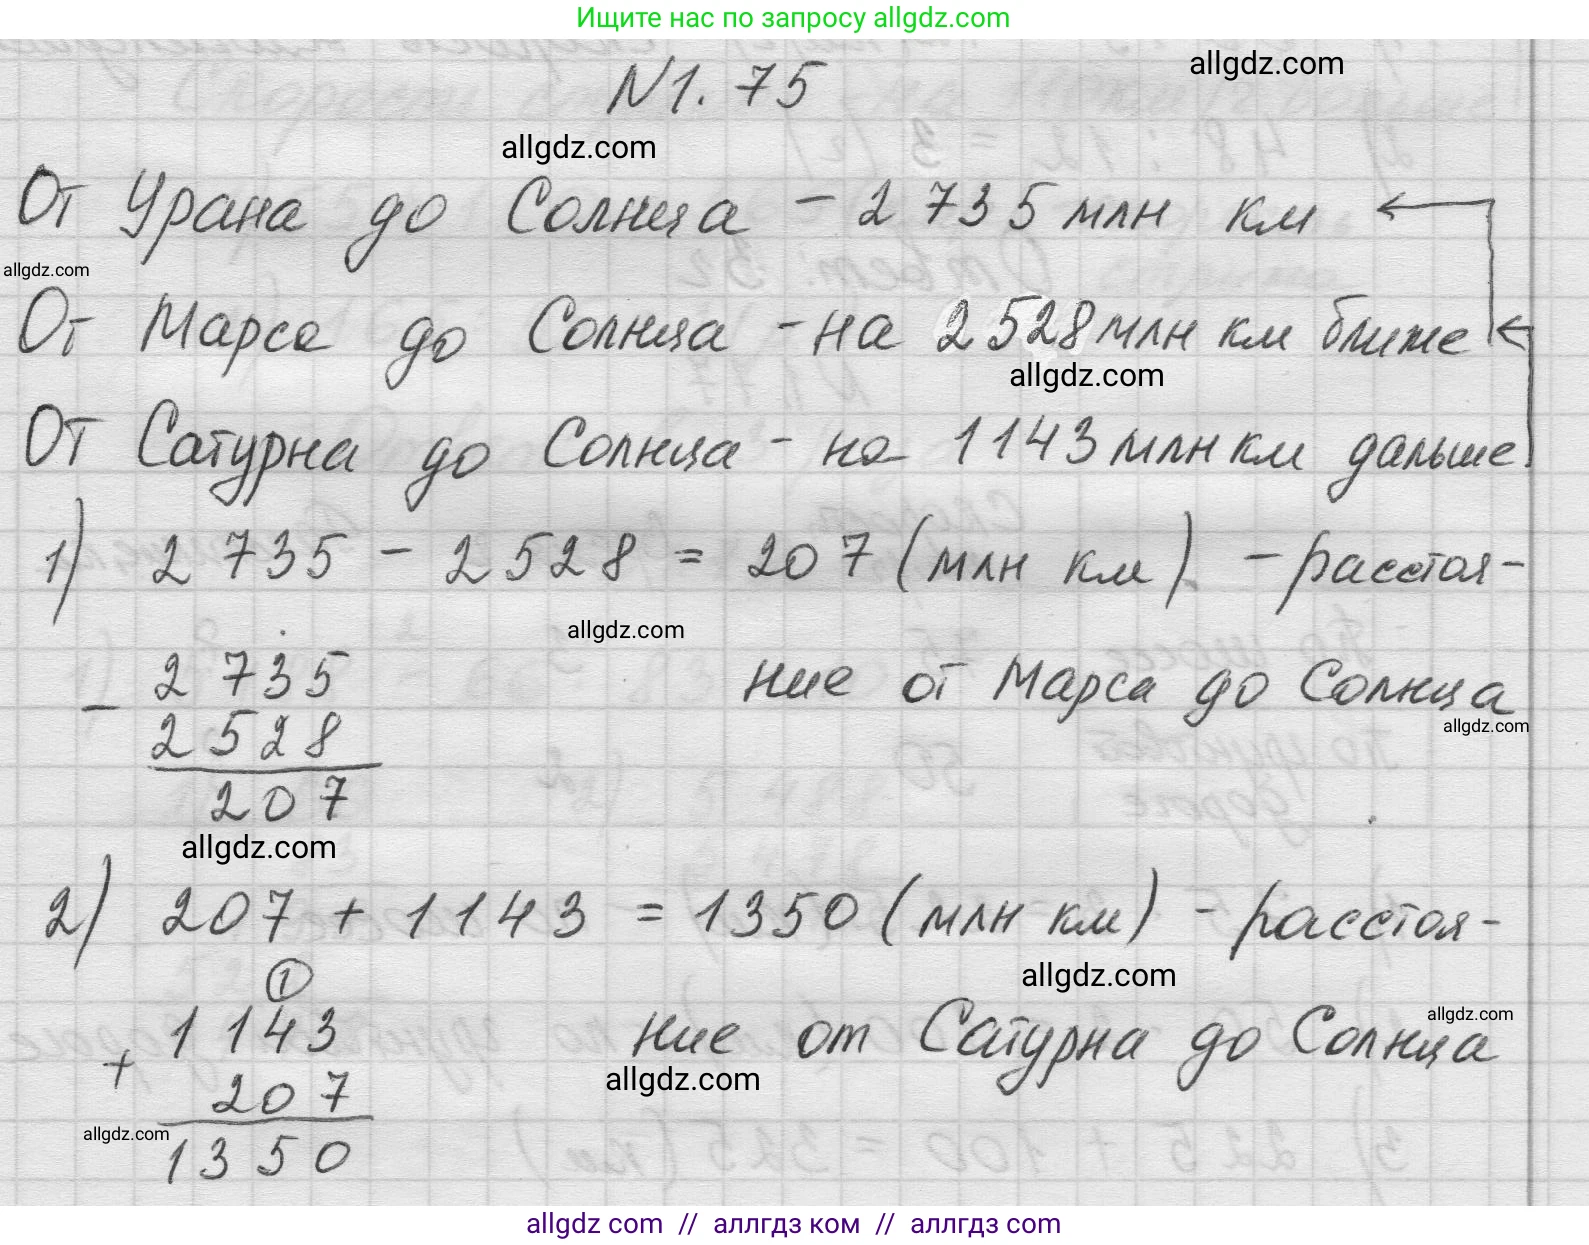 Ищите нас по запросу allgdz.com
allgdz.com
N1.75
allgdz.com
От Урана до Солнца - 2 735 млн км
allgdz.com
От Марса до Солнца - на 2 528 млн км ближе
allgdz.com
От Сатурна до Солнца - на 1143 млн км дальше
1) 2 735 - 2 528 = 207 (млн км) - расстоя-
allgdz.com
ние от Марса до Солнца
allgdz.com
2 735
-
2 528
207
allgdz.com
2) 207 + 1143 = 1350 (млн км) - расстоя-
allgdz.com
ние от Сатурна до Солнца
allgdz.com
allgdz.com
1
1143
+
207
allgdz.com
1350
allgdz com // аллгдз ком // аллгдз com